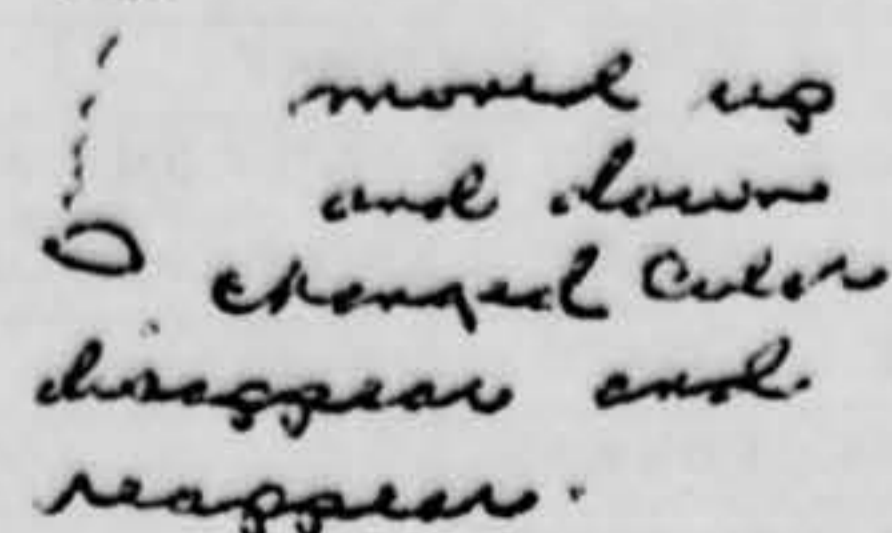 moved up
and down
changed Color
disappear and
reappear.